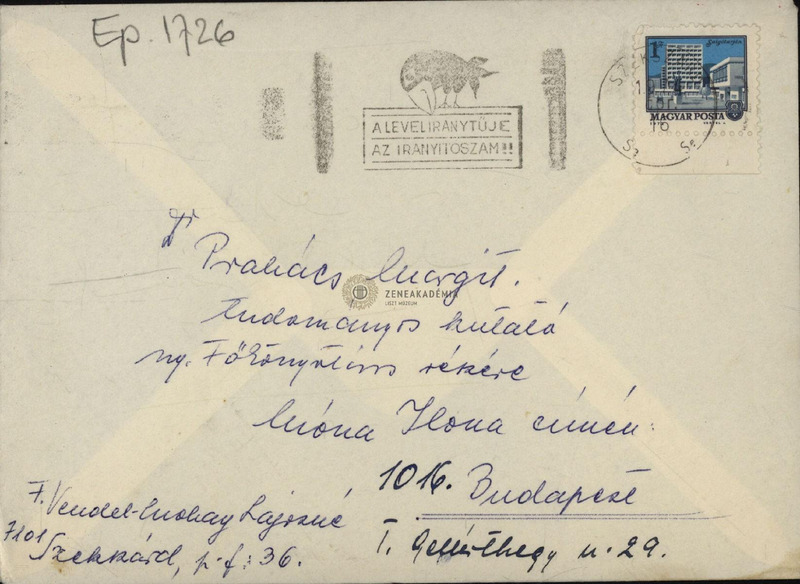 Ep. 1726
1 Ft
Salgótarján
MAGYAR POSTA
A LEVÉL IRÁNYTŰJE
AZ IRÁNYÍTÓSZÁM!!
16
Dr
Prahács Margit.
ZENEAKADÉMIA
LISZT MÚZEUM
tudományos kutató
ny. Főkönyvtáros részére
Móna Ilona címén:
1016. Budapest
I. Gellérthegy u. 29.
F. Vendel-Mohay Lajosné
7101
Szekszárd, p.f: 36.